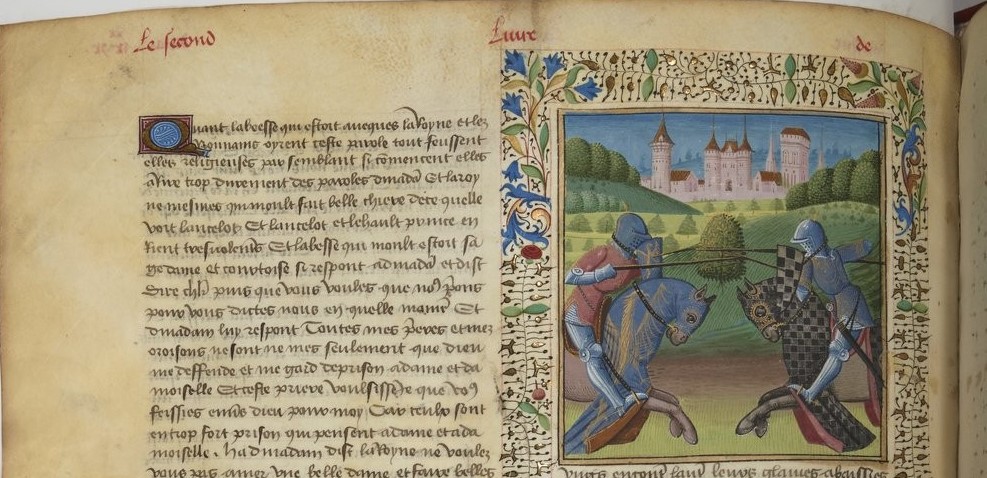 Le second Liure de
Quant labesse qui estoit auecques la Royne et les
Nonnains oyrent ceste parole tout feussent
elles religieuses par semblant si cōmencent elles
a Rire trop durement des paroles dinadā Et la roy
ne mesmes qui moult fait belle chiere de ce quelle
voit lancelot Et lancelot et lehault prince en
Rient tresvolent Et labesse qui moult estoit sa
ge dame et courtoise si respont a dinadā et dist
Sire chlr puis que vous voules que noꝰ prions
pour vous dictes nous en quelle manie Et
dinadam luy respont Toutes mes prieres et mes
oroisons ne sont ne mes seulement que dieu
me deffende et me gard de prison a dame et da
moiselle Et ceste priere voulsisse Je que voꝰ
feissies enuers dieu pour moy Car ceulx sont
en trop fort prison qui pensent a dame et a da
moiselle . ha dinadam dist la Royne ne voulez
vous pas amer vne belle dame et faire belles
leurs glaiues abaissees